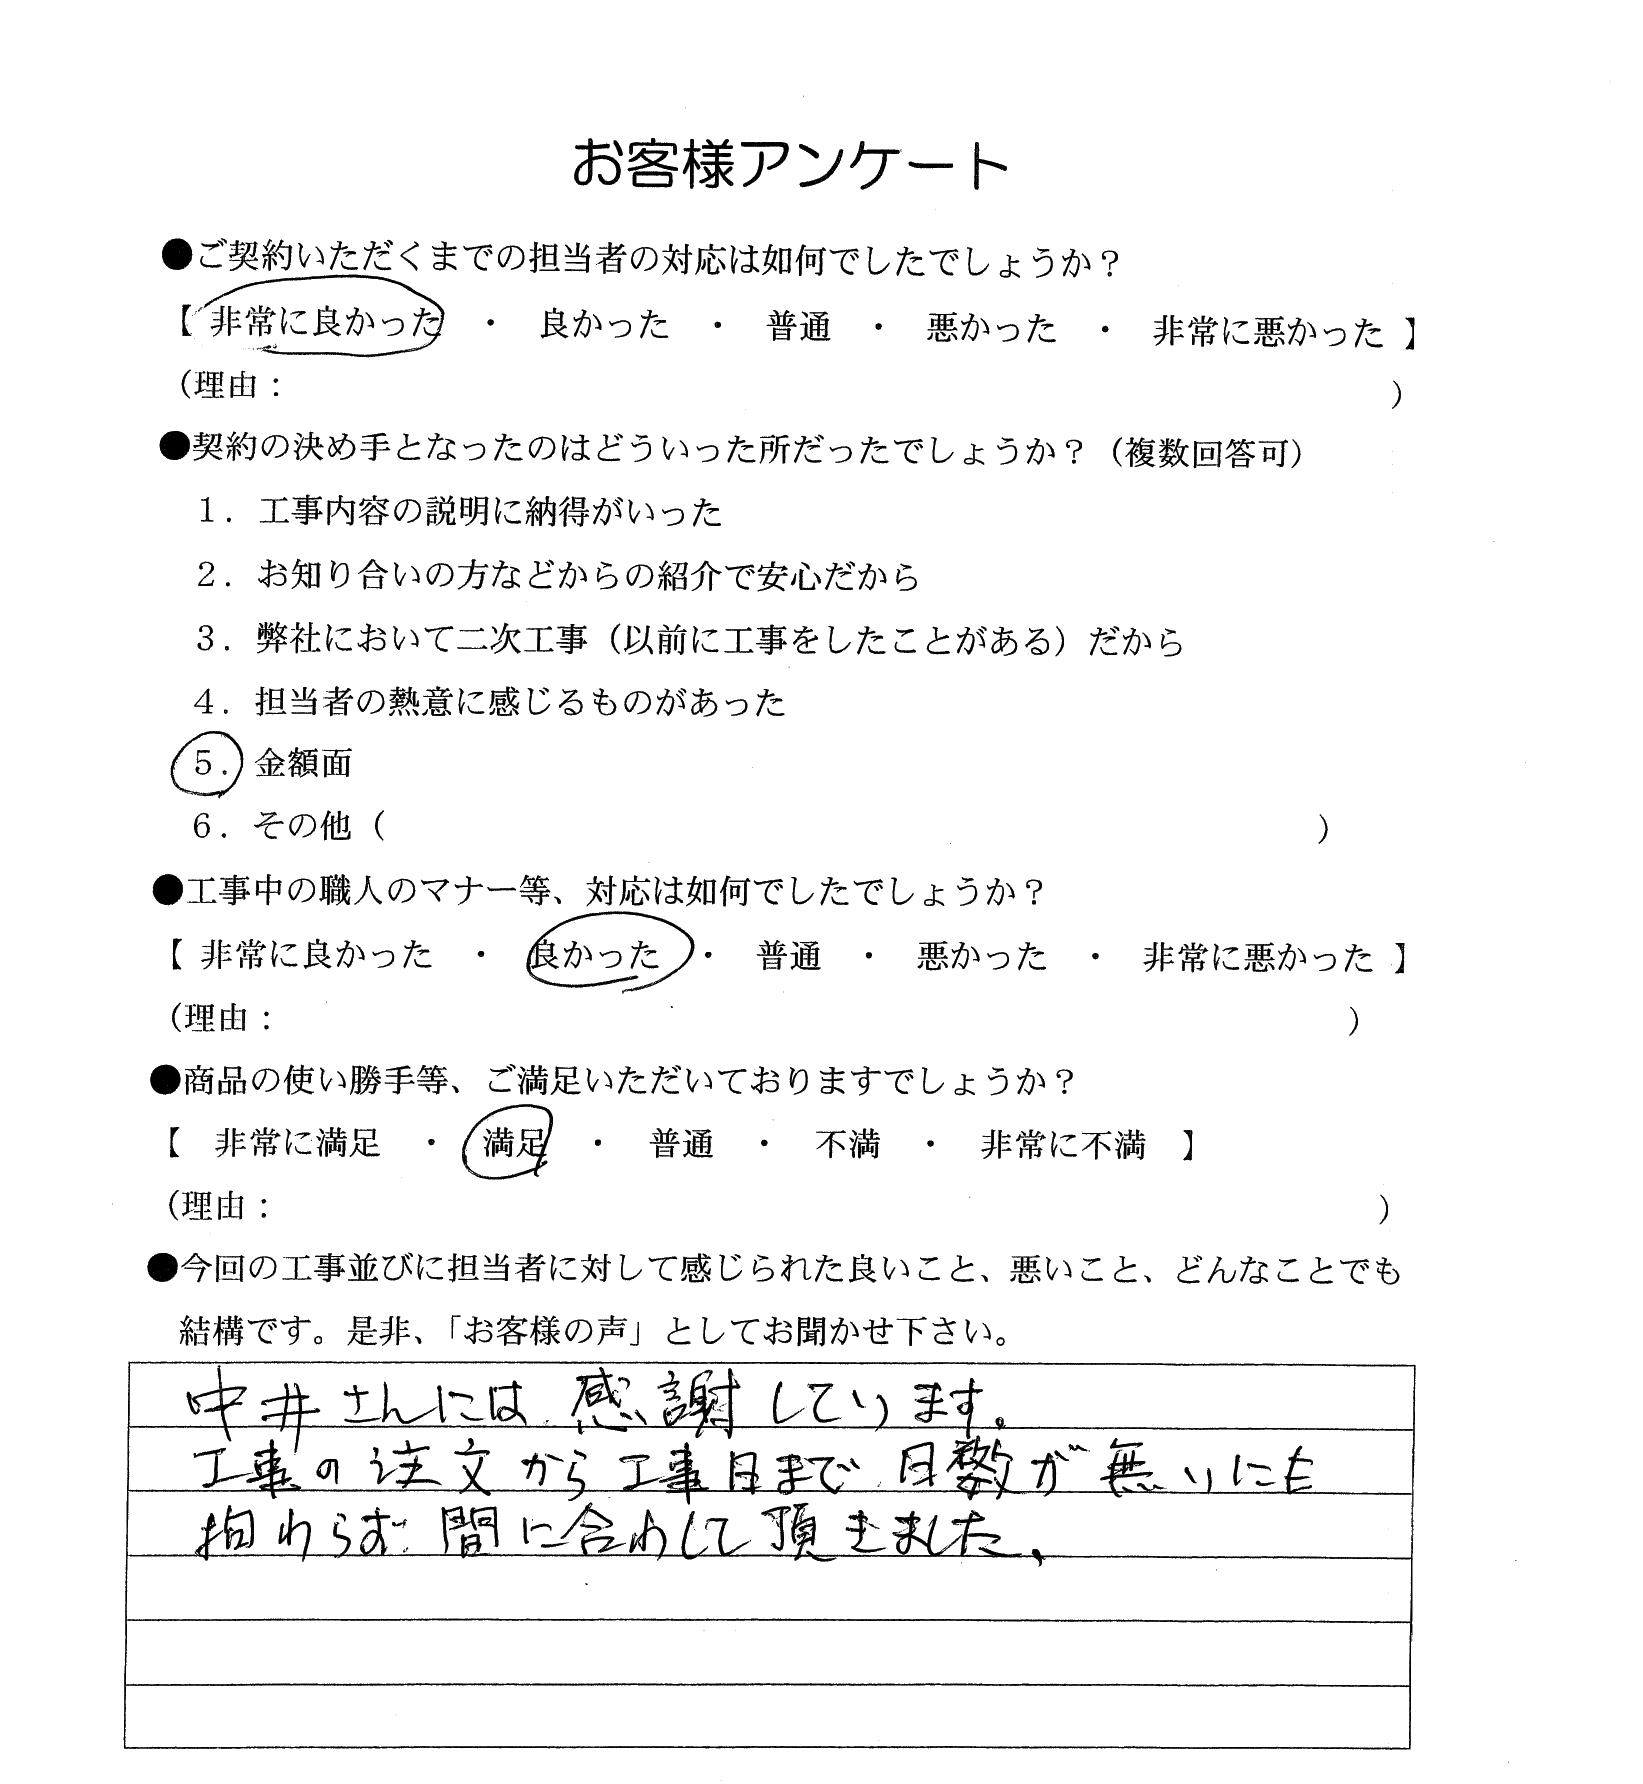 お客様アンケート
●ご契約いただくまでの担当者の対応は如何でしたでしょうか？
【 非常に良かった ・ 良かった ・ 普通 ・ 悪かった ・ 非常に悪かった 】
（理由： ）
●契約の決め手となったのはどういった所だったでしょうか？（複数回答可）
１．工事内容の説明に納得がいった
２．お知り合いの方などからの紹介で安心だから
３．弊社において二次工事（以前に工事をしたことがある）だから
４．担当者の熱意に感じるものがあった
５．金額面
６．その他（ ）
●工事中の職人のマナー等、対応は如何でしたでしょうか？
【 非常に良かった ・ 良かった ・ 普通 ・ 悪かった ・ 非常に悪かった 】
（理由： ）
●商品の使い勝手等、ご満足いただいておりますでしょうか？
【 非常に満足 ・ 満足 ・ 普通 ・ 不満 ・ 非常に不満 】
（理由： ）
●今回の工事並びに担当者に対して感じられた良いこと、悪いこと、どんなことでも
結構です。是非、「お客様の声」としてお聞かせ下さい。
中井さんには感謝しています。
工事の注文から工事日まで日数が無いにも
拘わらず間に合わして頂きました、